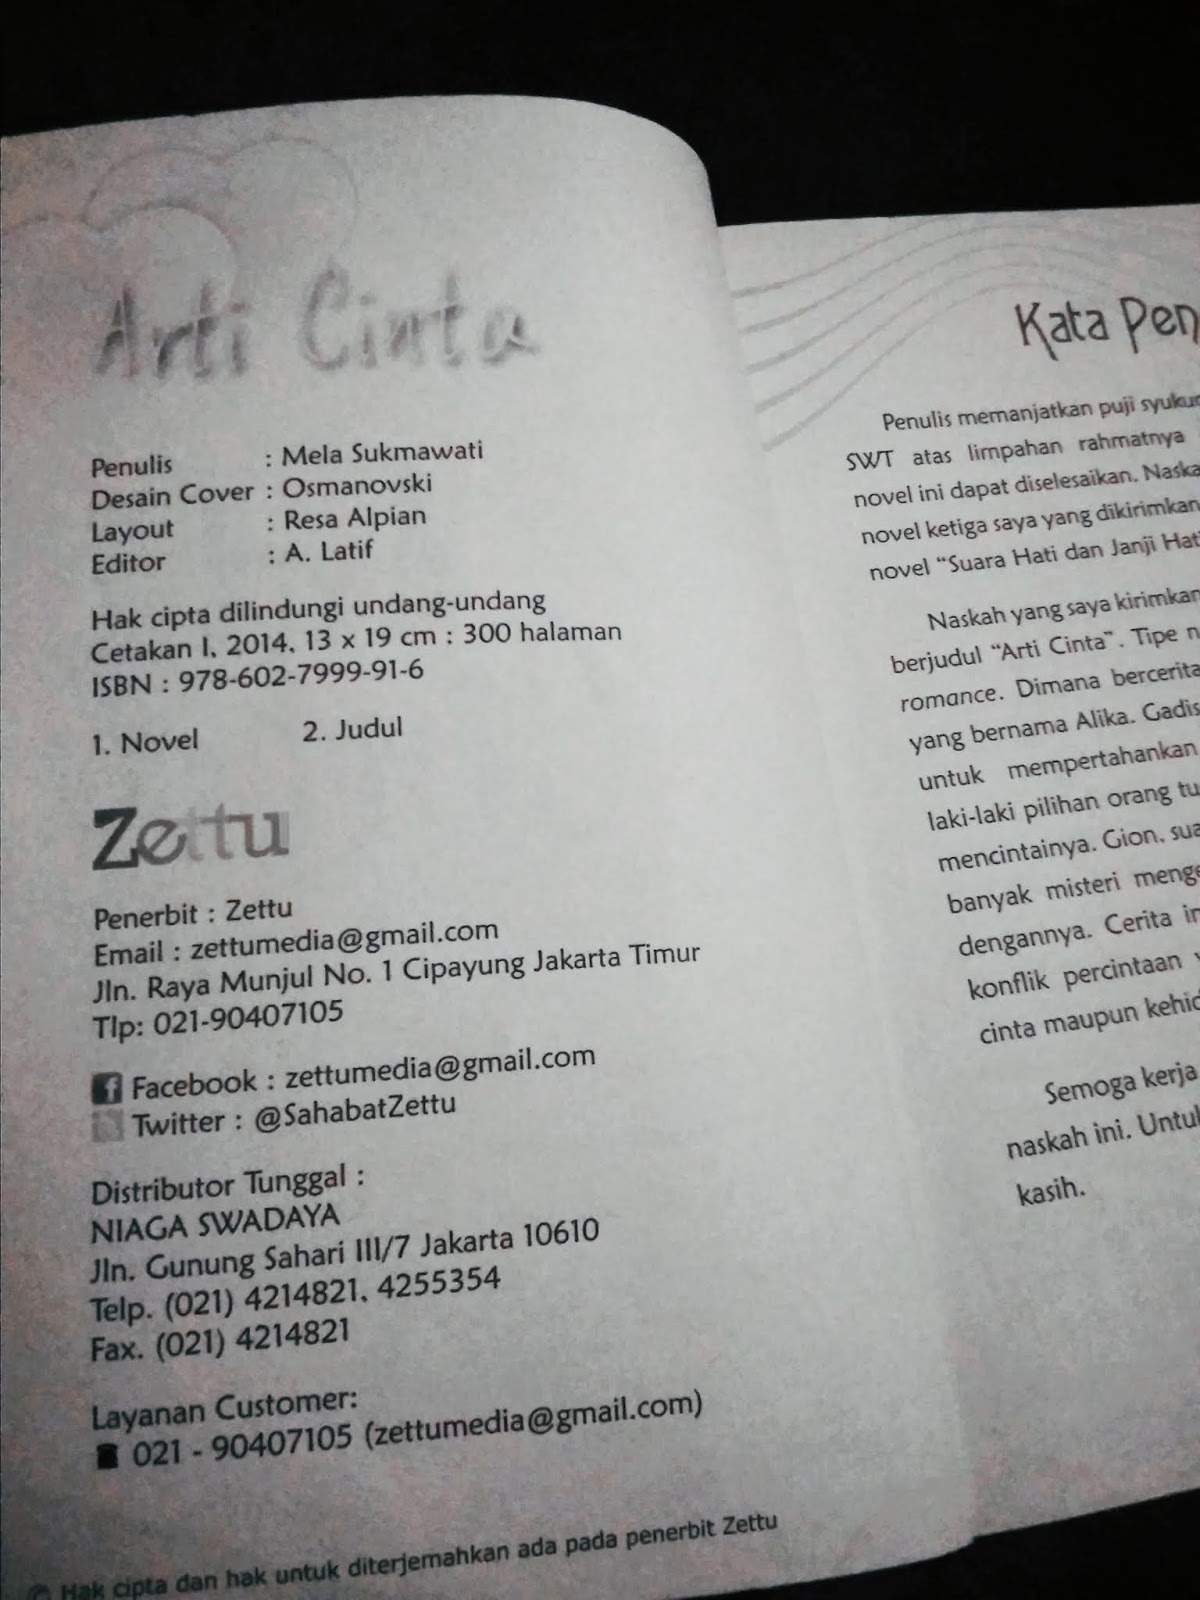 Arti Cinta
Penulis : Mela Sukmawati
Desain Cover : Osmanovski
Layout : Resa Alpian
Editor : A. Latif
Hak cipta dilindungi undang-undang
Cetakan I, 2014, 13 x 19 cm : 300 halaman
ISBN : 978-602-7999-91-6
1. Novel 2. Judul
Zettu
Penerbit : Zettu
Email : zettumedia@gmail.com
Jln. Raya Munjul No. 1 Cipayung Jakarta Timur
Tlp: 021-90407105
Facebook : zettumedia@gmail.com
Twitter : @SahabatZettu
Distributor Tunggal :
NIAGA SWADAYA
Jln. Gunung Sahari III/7 Jakarta 10610
Telp. (021) 4214821, 4255354
Fax. (021) 4214821
Layanan Customer:
021 - 90407105 (zettumedia@gmail.com)
© Hak cipta dan hak untuk diterjemahkan ada pada penerbit Zettu
Kata Pen
Penulis memanjatkan puji syukur
SWT atas limpahan rahmatnya
novel ini dapat diselesaikan. Naska
novel ketiga saya yang dikirimkan
novel “Suara Hati dan Janji Hati
Naskah yang saya kirimkan
berjudul “Arti Cinta”. Tipe n
romance. Dimana bercerita
yang bernama Alika. Gadis
untuk mempertahankan
laki-laki pilihan orang tu
mencintainya. Gion, sua
banyak misteri menge
dengannya. Cerita in
konflik percintaan
cinta maupun kehid
Semoga kerja
naskah ini. Untuk
kasih.